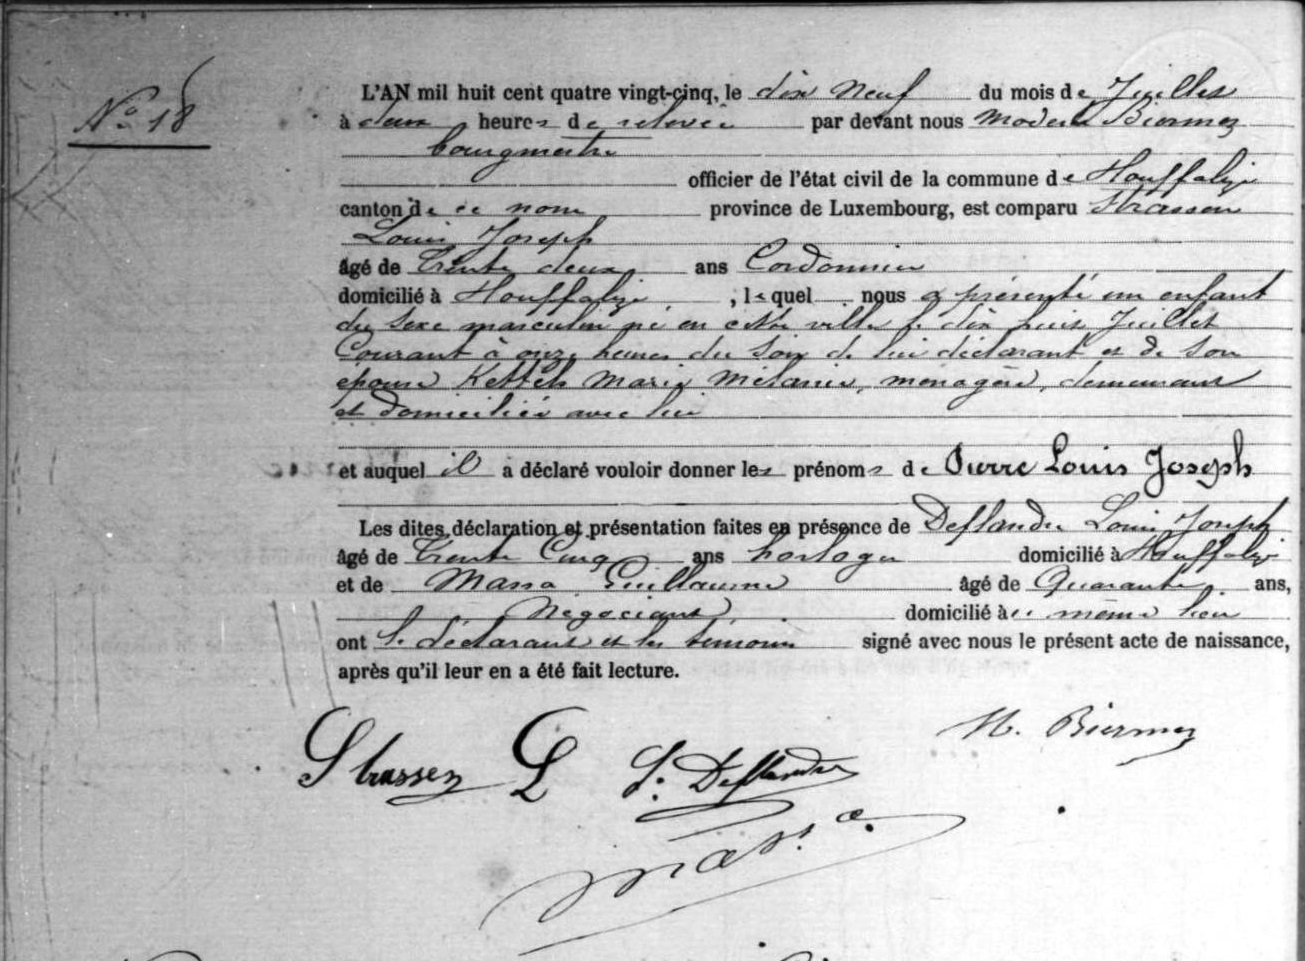 N° 18
L'AN mil huit cent quatre vingt-cinq, le dix neuf du mois de Juillet
à deux heures de relevée par devant nous Modeste Biermez
bourgmestre
officier de l'état civil de la commune de Houffalize
canton de ce nom province de Luxembourg, est comparu Strassen
Louis Joseph
âgé de trente deux ans Cordonnier
domicilié à Houffalize, lequel nous a présenté un enfant
du sexe masculin né en cette ville le dix huit Juillet
Courant à onze heures du soir de lui déclarant et de son
épouse Kettels Marie Mélanie, ménagère, demeurant
et domiciliée avec lui
et auquel il a déclaré vouloir donner les prénoms de Pierre Louis Joseph
Les dites déclaration et présentation faites en présence de Deflandre Louis Joseph
âgé de trente Cinq ans horloger domicilié à Houffalize
et de Massa Guillaume âgé de Quarante ans,
Négociant domicilié à ce même lieu
ont le déclarant et les témoins signé avec nous le présent acte de naissance,
après qu'il leur en a été fait lecture.
M. Biermez
Strassen L L. Deflandre
Massa